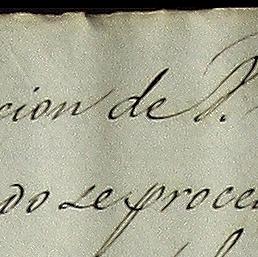 cion de
do se proce